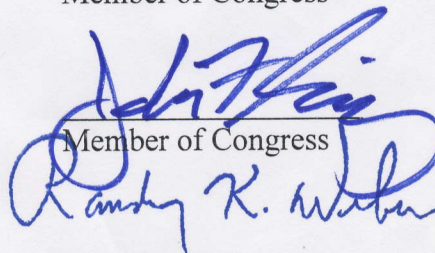 Member of Congress
Member of Congress
Randy K. Weber